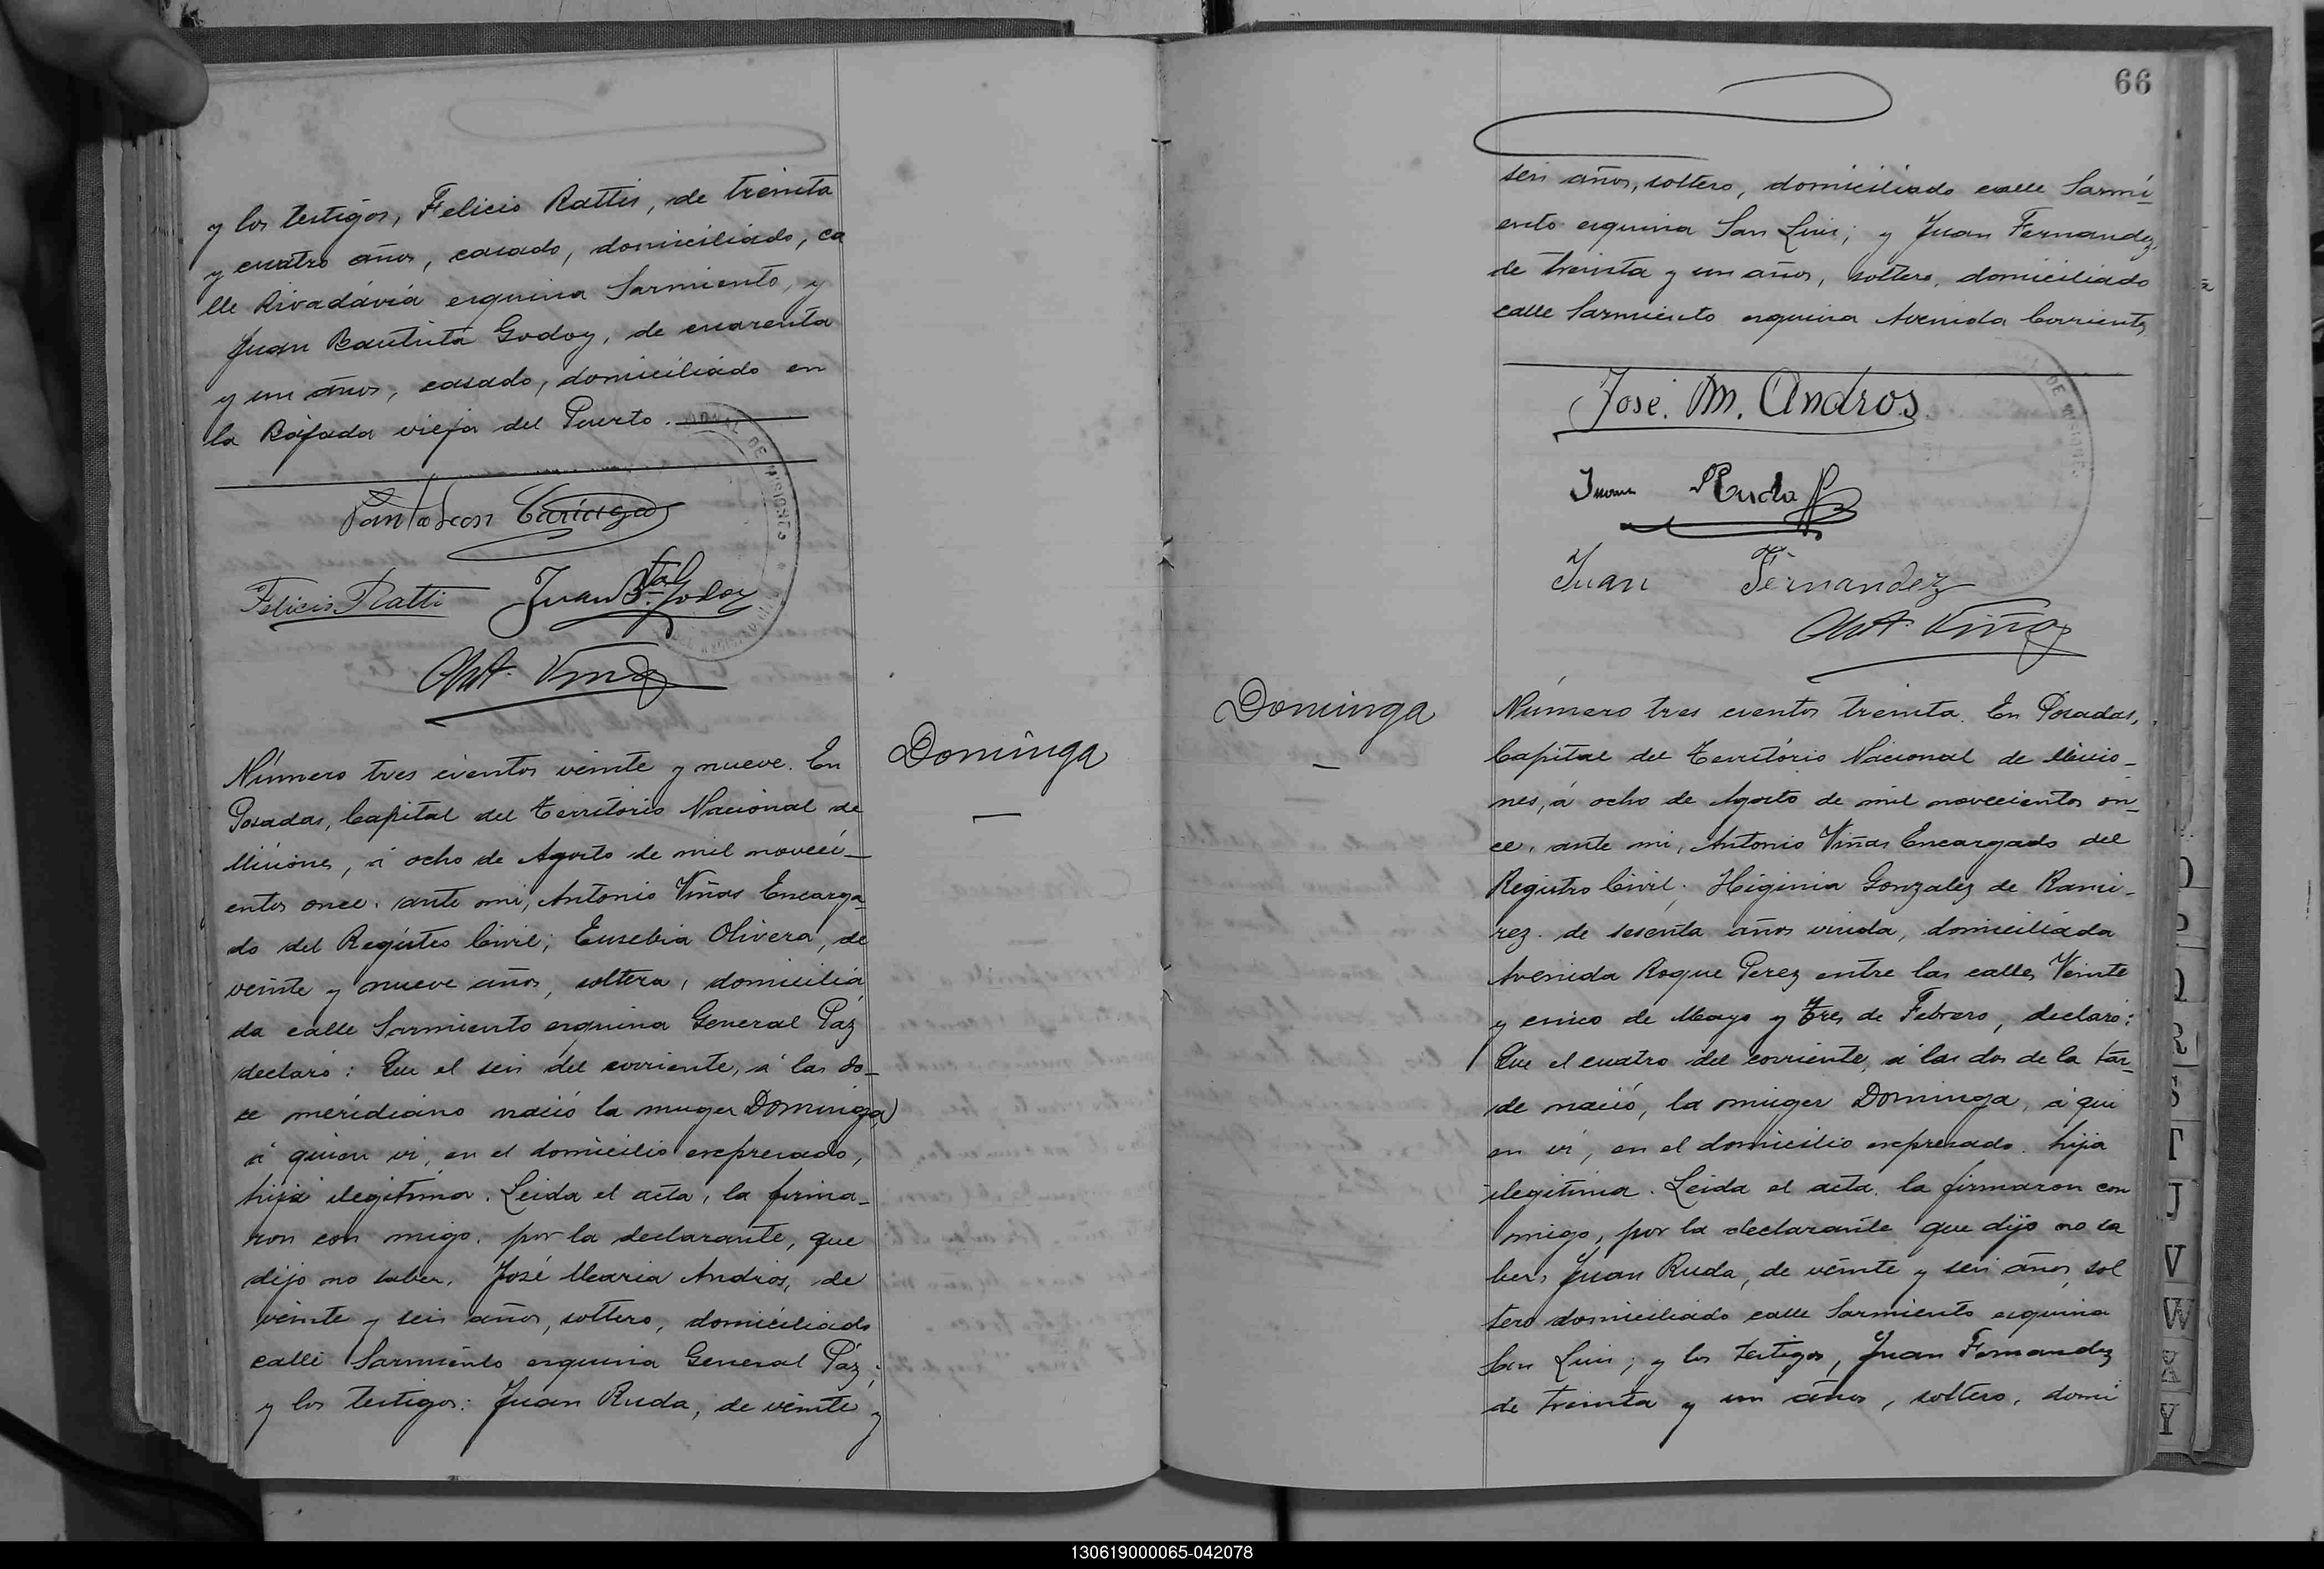 y los testigos, Felicio Rattis, de treinta
y cuatro años, casado, domiciliado, ca
lle Rivadávia esquina Sarmiento, y
Juan Bautista Godoy, de cuarenta
y un años, casado, domiciliado en
la Bajada vieja del Puerto.
Pantaleon Cariaga
Felicio Ratti Juan Bta Godoy
Ant. Viñas
Número tres cientos veinte y nueve. En
Posadas, Capital del Território Nacional de
Misiones, á ocho de Agosto de mil noveci-
entos once, ante mi, Antonio Viñas Encarga-
do del Registro Civil; Eusebia Olivera, de
veinte y nueve años, soltera, domicilia
da calle Sarmiento esquina General Páz
declaró: Que el seis del corriente, á las do-
ce meridiano nació la muger Dominga
á quien vi, en el domicilio expresado,
hija ilegitima. Leida el acta, la firma-
ron con migo, por la declarante, que
dijo no saber, José Maria Andros, de
veinte y seis años, soltero, domiciliado
calle Sarmiento esquina General Páz;
y los testigos: Juan Ruda, de veinte y
Dominga
66
seis años, soltero, domiciliado calle Sarmi-
ento esquina San Luis; y Juan Fernandez,
de treinta y un años, soltero, domiciliado
calle Sarmiento esquina Avenida Corrientes
José. M. Andros
Juan Ruda
Juan Fernandez
Ant. Viñas
Dominga
Número tres cientos treinta. En Posadas,
Capital del Território Nacional de Misio-
nes, á ocho de Agosto de mil novecientos on-
ce, ante mi, Antonio Viñas Encargado del
Registro Civil; Higinia Gonzalez de Rami-
rez. de sesenta años viuda, domiciliada
Avenida Roque Perez entre las calles Veinte
y cinco de Mayo y Tres de Febrero, declaró:
Que el cuatro del corriente, á las dos de la tar-
de nació, la muger Dominga, á qui
en vi, en el domicilio expresado. hija
ilegitima. Leida el acta, la firmaron con
migo, por la declarante que dijo no sa
ber, Juan Ruda, de veinte y seis años, sol
tero domiciliado calle Sarmiento esquina
San Luis; y los testigos, Juan Fernandez
de treinta y un años, soltero, domi
O
P
Q
R
S
T
J
V
W
X
Y
130619000065-042078